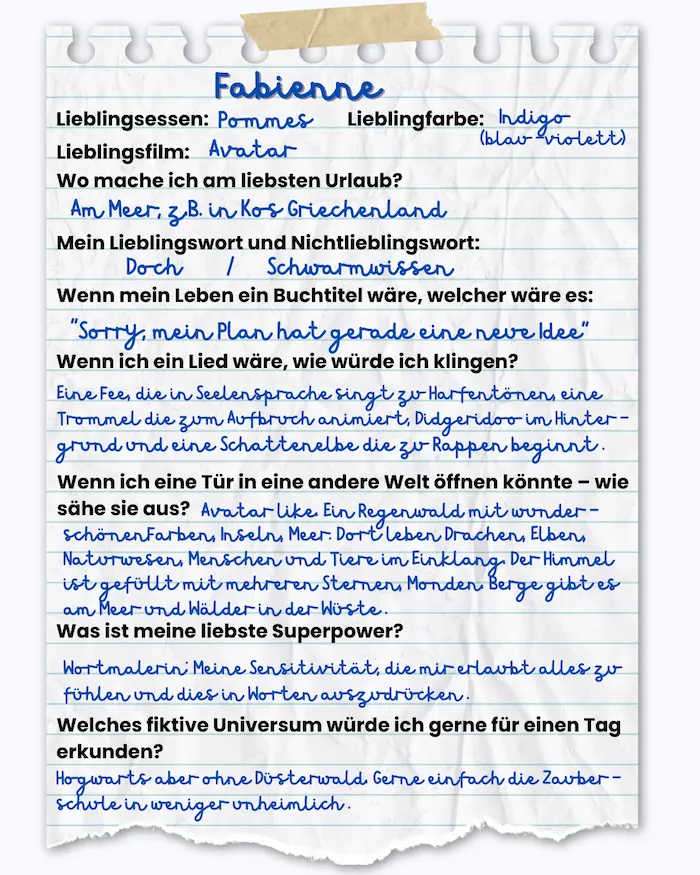 Fabienne
Lieblingsessen: Pommes Lieblingfarbe: Indigo
(blau-violett)
Lieblingsfilm: Avatar
Wo mache ich am liebsten Urlaub?
Am Meer, z.B. in Kos Griechenland
Mein Lieblingswort und Nichtlieblingswort:
Doch / Schwarmwissen
Wenn mein Leben ein Buchtitel wäre, welcher wäre es:
"Sorry, mein Plan hat gerade eine neue Idee"
Wenn ich ein Lied wäre, wie würde ich klingen?
Eine Fee, die in Seelensprache singt zu Harfentönen, eine
Trommel die zum Aufbruch animiert, Didgeridoo im Hinter-
grund und eine Schattenelbe die zu Rappen beginnt.
Wenn ich eine Tür in eine andere Welt öffnen könnte – wie
sähe sie aus? Avatar like. Ein Regenwald mit wunder-
schönen Farben, Inseln, Meer. Dort leben Drachen, Elben,
Naturwesen, Menschen und Tiere im Einklang. Der Himmel
ist gefüllt mit mehreren Sternen, Monden. Berge gibt es
am Meer und Wälder in der Wüste.
Was ist meine liebste Superpower?
Wortmalerin; Meine Sensitivität, die mir erlaubt alles zu
fühlen und dies in Worten auszudrücken.
Welches fiktive Universum würde ich gerne für einen Tag
erkunden?
Hogwarts aber ohne Düsterwald. Gerne einfach die Zauber-
schule in weniger unheimlich.